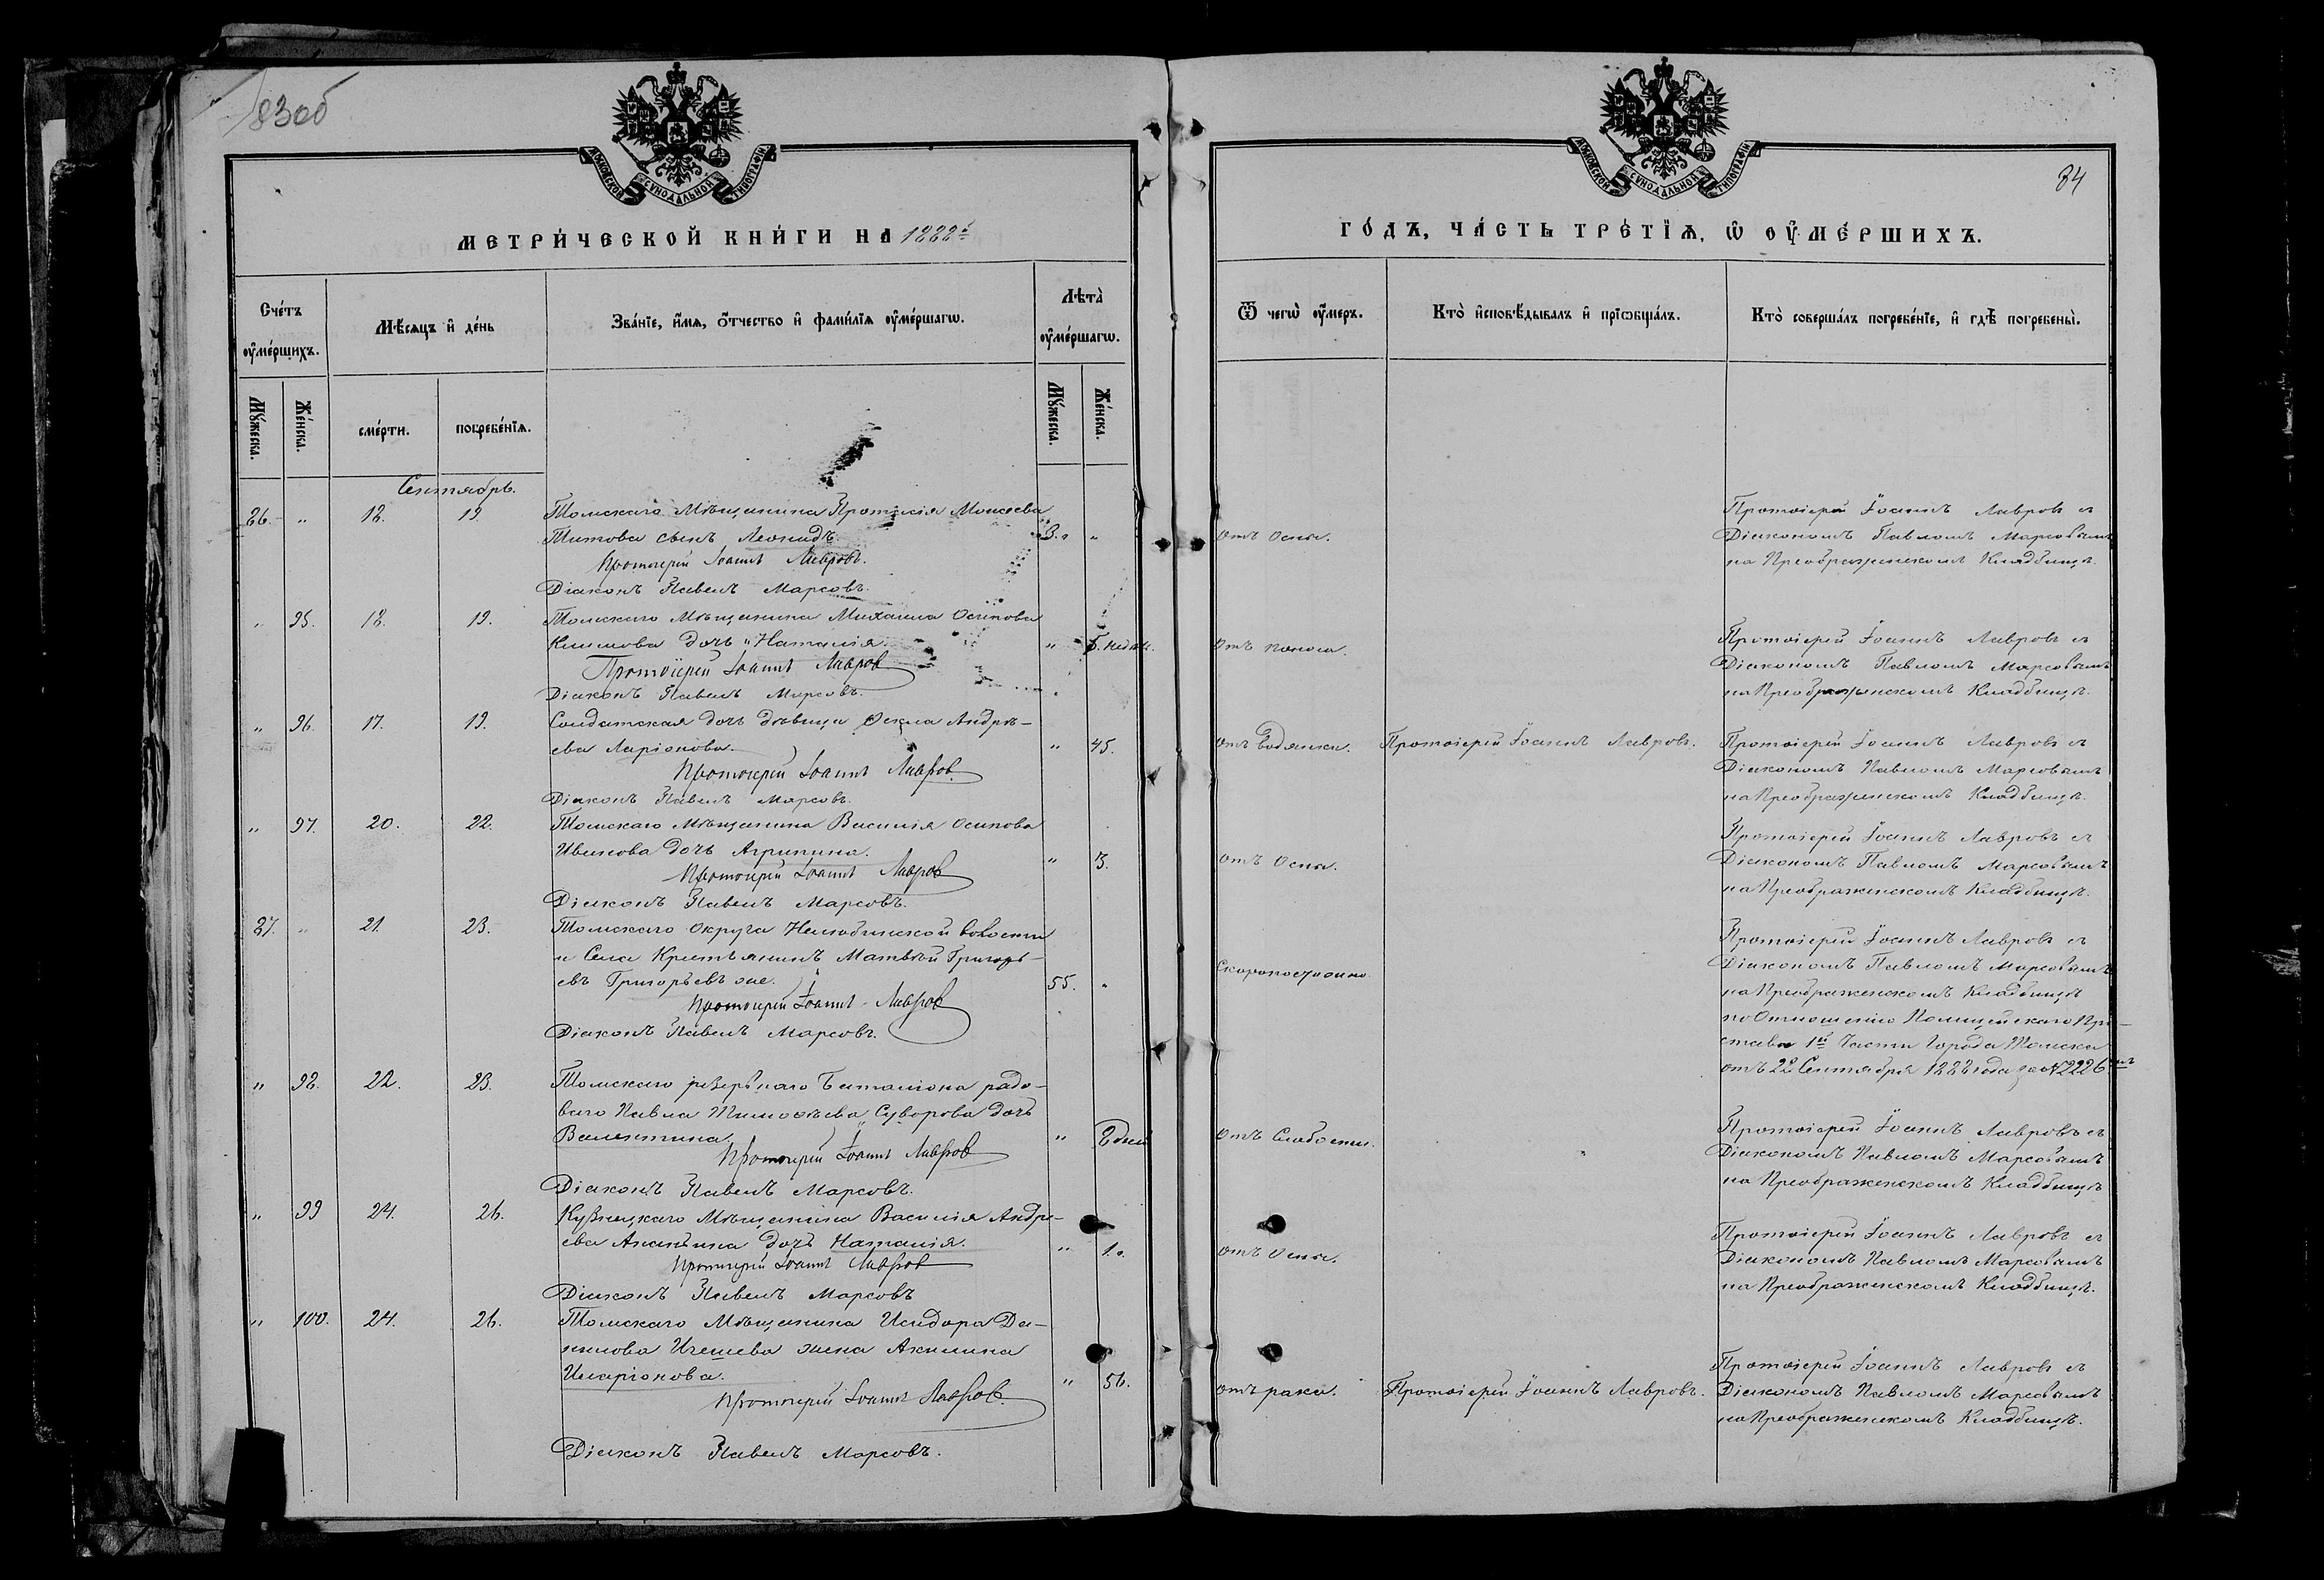 83об
МОСКОВСКОЙ СѴНОДАЛЬНОЙ ТИПОГРАФІИ
МЕТРИ́ЧЕСКОЙ КНИ́ГИ НА 1888й
Сче́тъ ᲂу҆ме́рщихъ.
Мѣ́сяцъ и҆ де́нь
Зва́нїе, и҆́мѧ, ѻ҆́тчество и҆ фами́лїѧ ᲂу҆ме́ршагѡ.
Лѣта̀ ᲂу҆ме́ршагѡ.
Мꙋ́жеска.
Же́нска.
сме́рти.
погребе́нїѧ.
Мꙋ́жеска.
Же́нска.
Сентябрь.
86. " 18. 19. Томскаго Мѣщанина Протасія Моисеева
Титова сынъ Леонидъ. 3. "
Протоіерей Іоаннъ Лавровъ.
Діаконъ Павелъ Марсовъ.
" 95. 18. 19. Томскаго Мѣщанина Михаила Осипова
Климова дочь "Наталія. " 5. недѣл.
Протоіерей Іоаннъ Лавров
Діаконъ Павелъ Марсовъ.
" 96. 17. 19. Солдатская дочь дѣвица Ѳекла Андрѣ-
ева Ларіонова. " 45.
Протоіерей Іоаннъ Лавров.
Діаконъ Павелъ Марсовъ.
" 97. 20. 22. Томскаго Мѣщанина Василія Осипова
Ивинова дочь Агрипина. " 3.
Протоіерей Іоаннъ Лавров
Діаконъ Павелъ Марсовъ.
87. " 21. 23. Томскаго Округа Нелюбинской волости
и Села Крестьянинъ Матвѣй Григорь-
евъ Григорьевъ же. 55. "
Протоіерей Іоаннъ Лавров
Діаконъ Павелъ Марсовъ.
" 98. 22. 23. Томскаго резервнаго баталіона рядо-
ваго Павла Тимоѳѣева Суворова дочь
Валентина. " 8 дней
Протоіерей Іоаннъ Лавров
Діаконъ Павелъ Марсовъ.
" 99 24. 26. Кузнецкаго Мѣщанина Василія Андре-
ева Ананьина дочь Наталія. " 1.
Протоіерей Іоаннъ Лавров
Діаконъ Павелъ Марсовъ
" 100. 24. 26. Томскаго Мѣщанина Исидора Да-
нилова Ичешева жена Акилина
Иларіонова. " 56.
Протоіерей Іоаннъ Лавров.
Діаконъ Павелъ Марсовъ.
МОСКОВСКОЙ СѴНОДАЛЬНОЙ ТИПОГРАФІИ
84
ГО́ДЪ, ЧА́СТЬ ТРЕ́ТЇѦ, Ѡ ОУ҆МЕ́РШИХЪ.
Ѿ чегѡ̀ ᲂу҆́меръ.
Кто̀ и҆сповѣ́дывалъ и҆ прїѡбща́лъ.
Кто̀ соверша́лъ погребе́нїе, и҆ гдѣ̀ погребены̀.
Протоіерей Іоаннъ Лавровъ съ
отъ Оспы. Діакономъ Павломъ Марсовымъ
на Преображенскомъ Кладбищѣ.
Протоіерей Іоаннъ Лавровъ съ
отъ поноса. Діакономъ Павломъ Марсовымъ
на Преображенскомъ Кладбищѣ.
отъ водянки. Протоіерей Іоаннъ Лавровъ. Протоіерей Іоаннъ Лавровъ съ
Діакономъ Павломъ Марсовымъ
на Преображенскомъ Кладбищѣ.
Протоіерей Іоаннъ Лавровъ съ
отъ Оспы. Діакономъ Павломъ Марсовымъ
на Преображенскомъ Кладбищѣ.
Протоіерей Іоаннъ Лавровъ съ
Скоропостижно. Діакономъ Павломъ Марсовымъ
на Преображенскомъ Кладбищѣ
по Отношенію Полицейскаго При-
става 1й Части Города Томска
отъ 22 Сентября 1888 года за № 2226мъ
Протоіерей Іоаннъ Лавровъ съ
отъ Слабости. Діакономъ Павломъ Марсовымъ
на Преображенскомъ Кладбищѣ
Протоіерей Іоаннъ Лавровъ съ
отъ Оспы. Діакономъ Павломъ Марсовымъ
на Преображенскомъ Кладбищѣ.
Протоіерей Іоаннъ Лавровъ съ
отъ рака. Протоіерей Іоаннъ Лавровъ. Діакономъ Павломъ Марсовымъ
на Преображенскомъ Кладбищѣ.